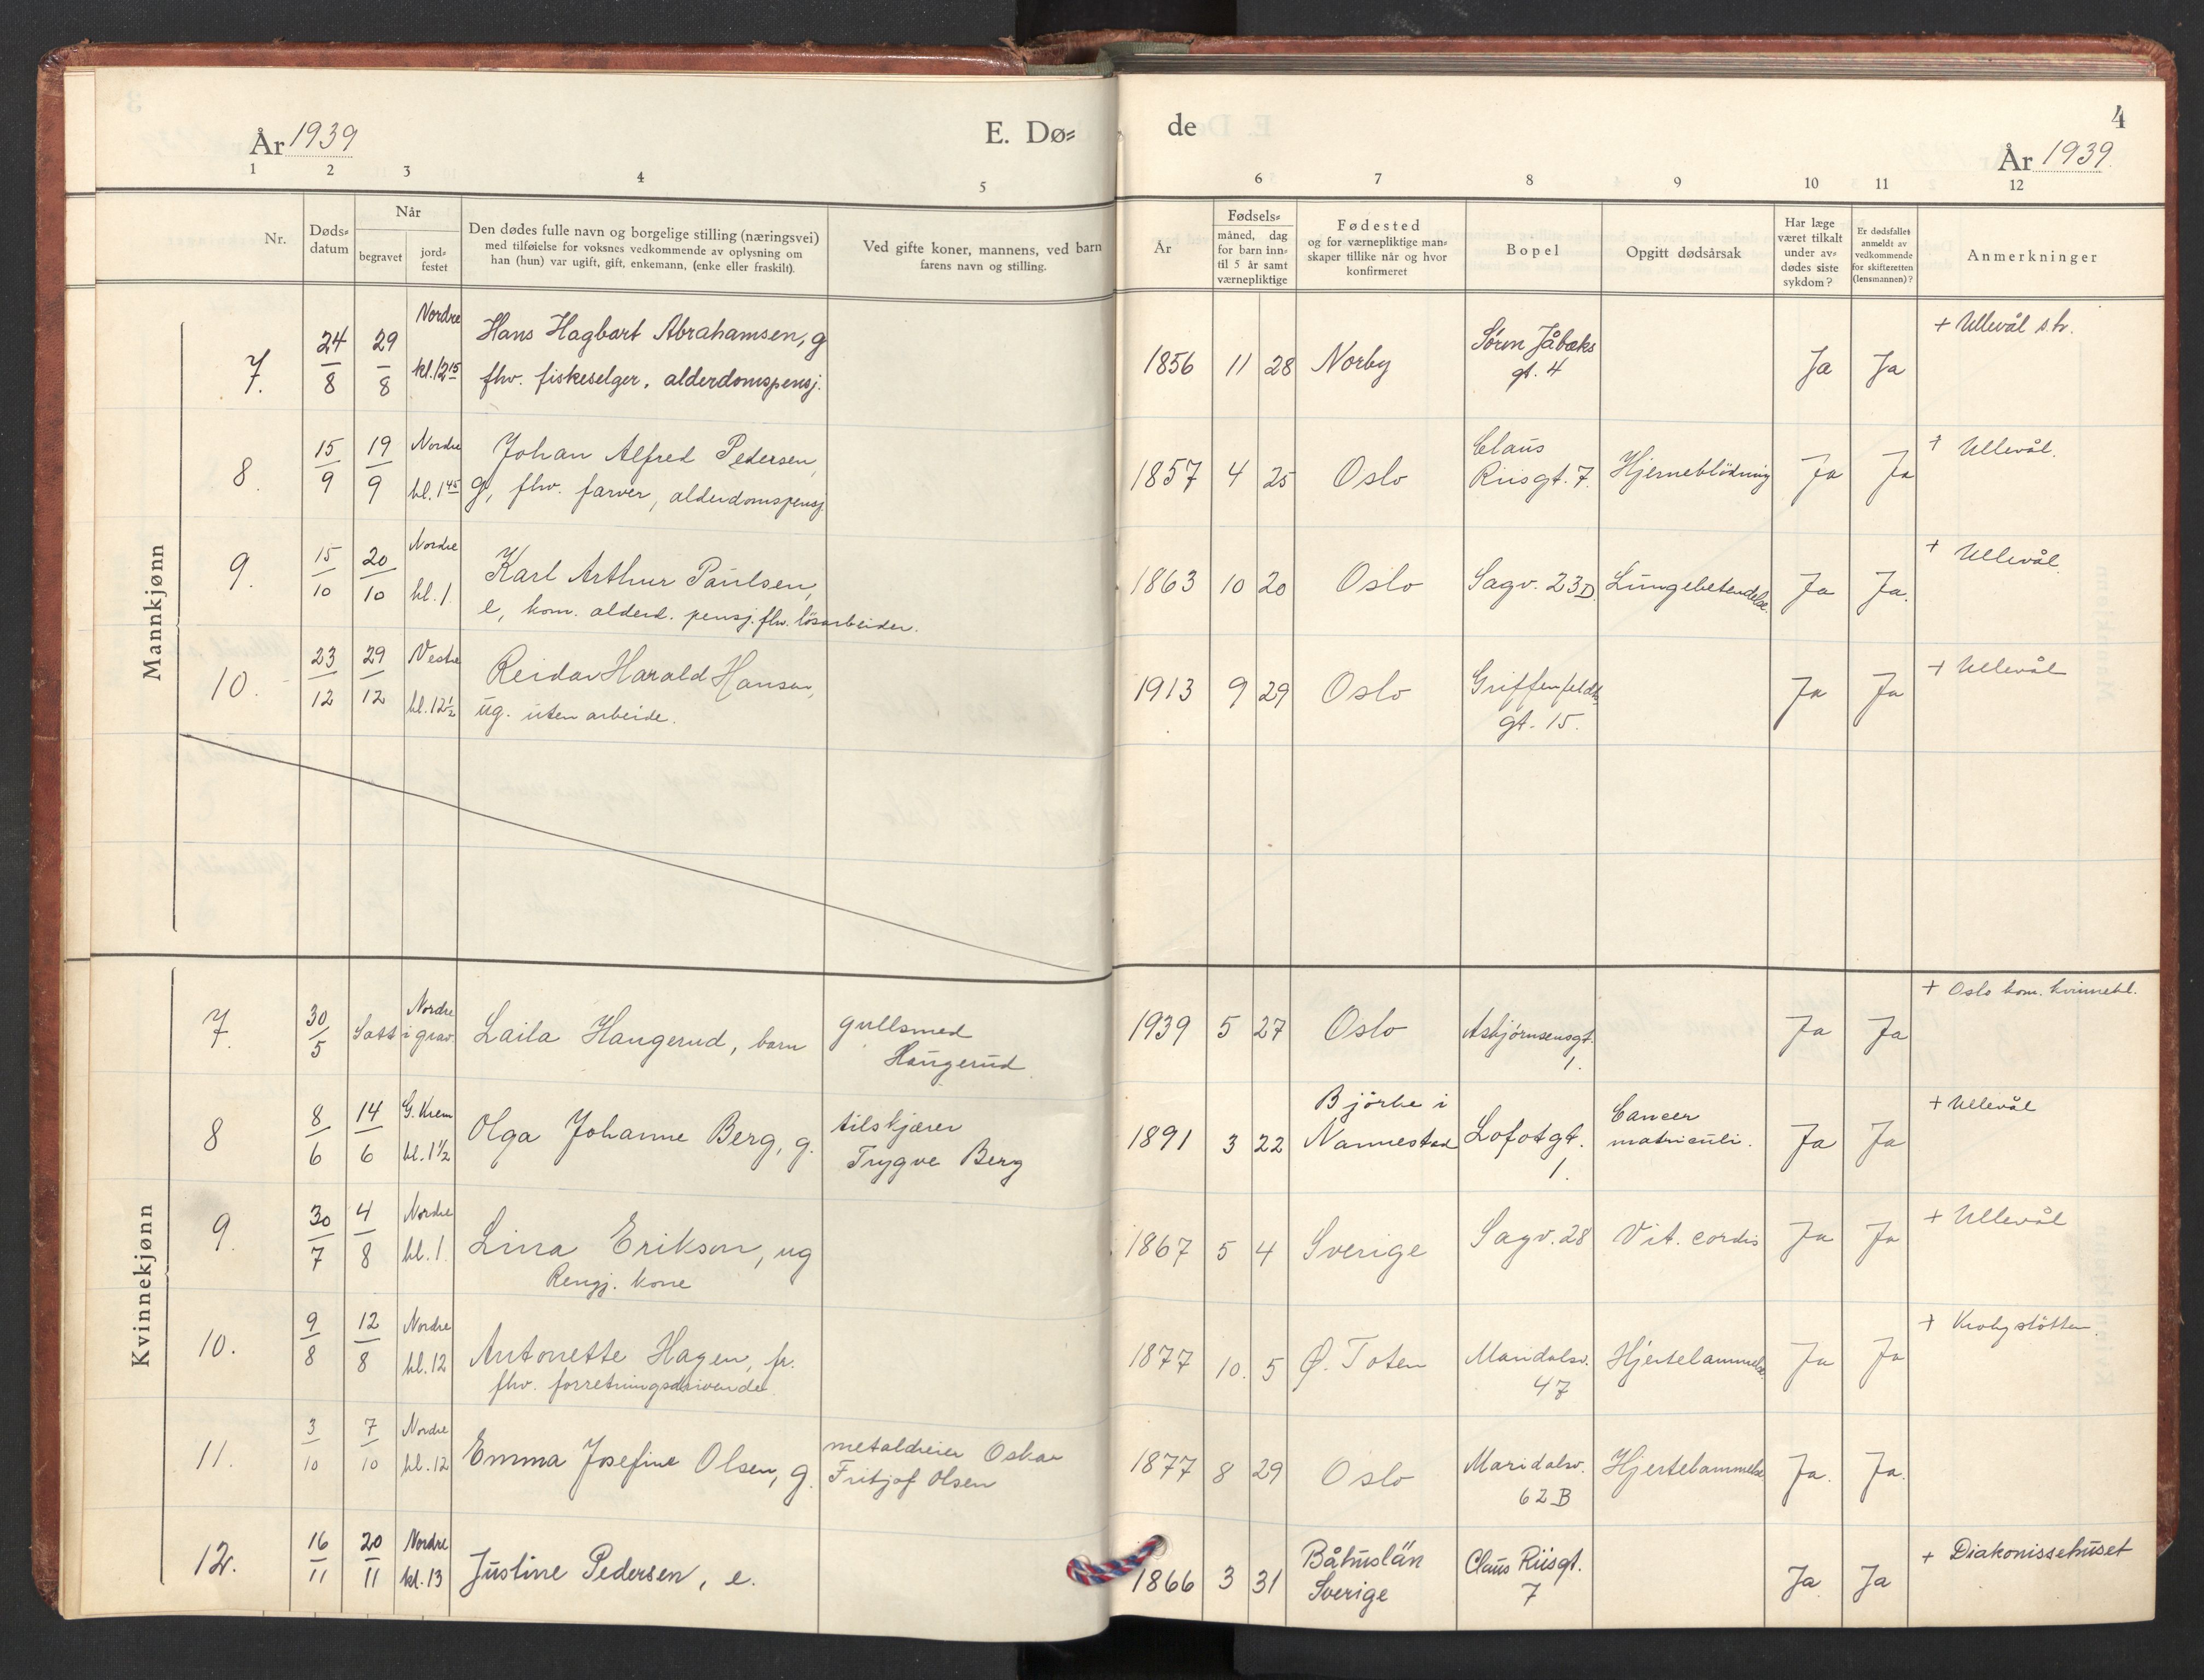 År 1939
E. Dø=
de
4
År 1939
1 2 3 4 5 6 7 8 9 10 11 12
Nr.
Døds=
datum
Når
begravet
jord=
festet
Den dødes fulle navn og borgelige stilling (næringsvei)
med tilføielse for voksnes vedkommende av oplysning om
han (hun) var ugift, gift, enkemann, (enke eller fraskilt).
Ved gifte koner, mannens, ved barn
farens navn og stilling.
År
Fødsels=
måned, dag
for barn inn=
til 5 år samt
værnepliktige
Fødested
og for værnepliktige man=
skaper tillike når og hvor
konfirmeret
Bopel
Opgitt dødsårsak
Har læge
været tilkalt
under av=
dødes siste
sykdom?
Er dødsfallet
anmeldt av
vedkommende
for skifteretten
(lensmannen)?
Anmerkninger
Mannkjønn
7. 24/8 29/8 Nordre kl. 12 15 Hans Hagbart Abrahamsen, g
fhv. fiskeselger, alderdomspensj.
1856 11 28 Norby Søren Jåbæks
gt. 4
Ja Ja + Ullevål s.h.
8. 15/9 19/9 Nordre kl. 1 45 Johan Alfred Pedersen,
g, fhv. farver, alderdomspensj.
1857 4 25 Oslo Claus
Riisgt. 7. Hjerneblödning Ja Ja + Ullevål.
9. 15/10 20/10 Nordre kl. 1 Karl Arthur Paulsen,
e, kom. alderd. pensj. fhv. lösarbeider.
1863 10 20 Oslo Sagv. 23D. Lungebetendelse. Ja Ja. + Ullevål.
10. 23/12 29/12 Vestre kl. 12 1/2 Reidar Harald Hansen,
ug. uten arbeide.
1913 9 29 Oslo Griffenfeldts
gt. 15.
Ja Ja + Ullevål
Kvinnekjønn
7. 30/5 Satt i grav Nordre Laila Haugerud, barn gullsmed
Haugerud.
1939 5 27 Oslo Asbjørnsensgt.
1.
Ja Ja + Oslo kom. kvinnekl.
8 8/6 14/6 G. Krem kl. 1 1/2 Olga Johanne Berg, g. tilskjærer
Trygve Berg
1891 3 22 Björke i
Nannestad Lofotgt.
1.
Cancer
matriculi. Ja Ja + Ullevål
9. 30/7 4/8 Nordre kl. 1 Lina Erikson, ug
Rengj. kone
1867 5 4 Sverige Sagv. 28 Vit. cordis Ja Ja + Ullevål
10. 9/8 12/8 Nordre kl. 12 Antonette Hagen, fr.
fhv. forretningsdrivende.
1877 10. 5 Ø. Toten Maridalsv.
47
Hjertelammelse Ja Ja + Krohgstötten.
11. 3/10 7/10 Nordre kl. 12 Emma Josefine Olsen, g. metaldreier Oskar
Fritjof Olsen
1877 8 29 Oslo Maridalsv.
62B
Hjertelammelse Ja. Ja.
12. 16/11 20/11 Nordre kl. 13 Justine Pedersen, e.
1866 3 31 Båhuslän
Sverige
Claus Riisgt.
7
Ja Ja + Diakonissehuset